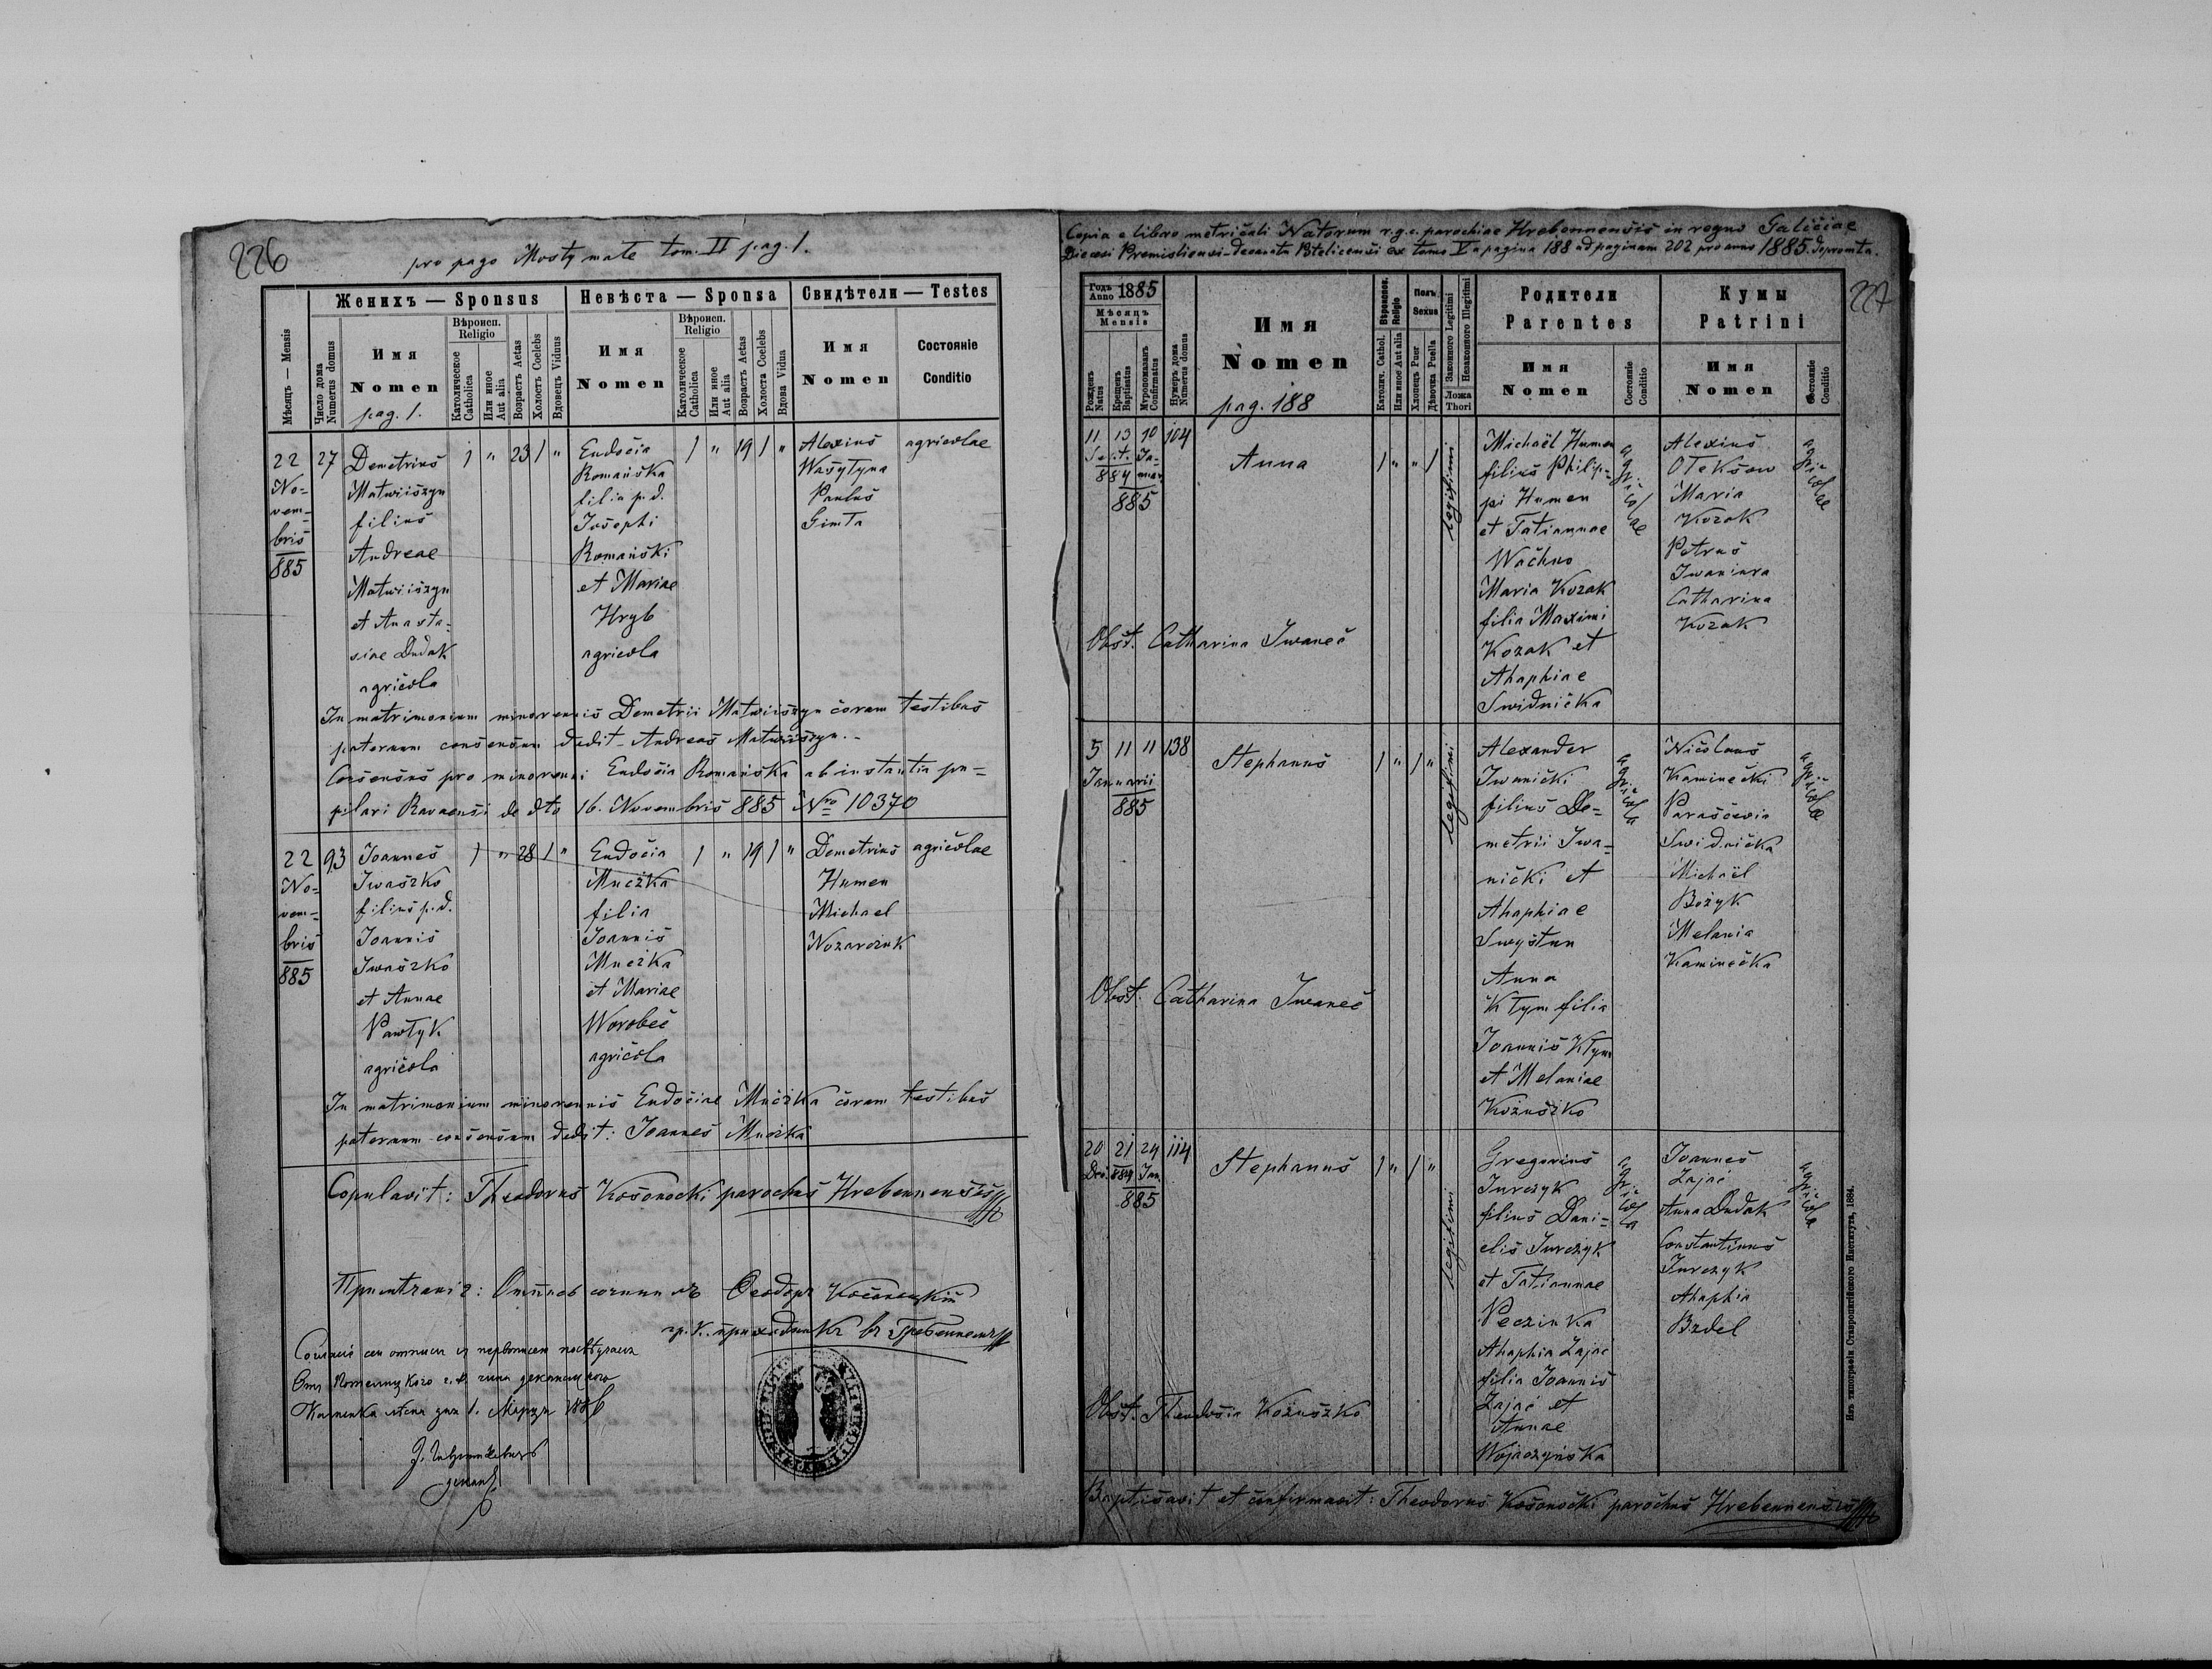 226
pro pago Mosty małe tom. II pag. 1.
Женихъ — Sponsus
Невѣста — Sponsa
Свидѣтели — Testes
Мѣсяцъ — Mensis
Число дома
Numerus domus
Имя
Nomen
pag. 1.
Вѣроисп.
Religio
Католическое
Catholica
Или иное
Aut alia
Возрастъ Aetas
Холостъ Coelebs
Вдовецъ Viduus
Имя
Nomen
Вѣроисп.
Religio
Католическое
Catholica
Или иное
Aut alia
Возрастъ Aetas
Холоста Coelebs
Вдова Vidua
Имя
Nomen
Состояніе
Conditio
22
No-
vem-
bris
885
27
Demetrius
Matwiiszyn
filius
Andreae
Matwiiszyn
et Anasta-
siae Dudak
agricola
1 " 23 1 "
Eudocia
Romańska
filia p.d.
Josephi
Romański
et Mariae
Hryb
agricola
1 " 19 1 "
Alexius
Wasyłyna
Paulus
Gimła
agricolae
In matrimonium minorennis Demetrii Matwiiszyn coram testibus
paternum consensum dedit - Andreas Matwiiszyn. -
Consensus pro minorenni Eudocia Romańska ab instantia pu-
pilari Ravaensi de dto 16. Novembris 885 Nro 10370
22
No-
vem-
bris
885
93
Joannes
Iwaszko
filius p.d.
Joannis
Iwaszko
et Annae
Pawłyk
agricola
1 " 28 1 "
Eudocia
Muczka
filia
Joannis
Muczka
et Mariae
Worobec
agricola
1 " 19 1 "
Demetrius
Humen
Michael
Nozarczuk
agricolae
In matrimonium minorennis Eudociae Muczka coram testibus
paternum consensum dedit: Joannes Muczka
Copulavit: Theodorus Kosonocki parochus Hrebennensis
Ѳеодоръ
гр. к. приходникъ въ Гребенномъ
1. Марця 1886
деканъ
Copia e libro metricali Natorum r.g.c. parochiae Hrebennensis in regno Galiciae
Diecesi Premisliensi - Decanatu Potelicensi ex tomo V a pagina 188 ad paginam 202 pro anno 1885. depromta.
227
Годъ
Anno 1885
Мѣсяцъ
Mensis
Рожденъ
Natus
Крещенъ
Baptisatus
Мѵропомазанъ
Confirmatus
Нумеръ дома
Numerus domus
Имя
Nomen
pag. 188
Вѣроисповѣд.
Religio
Католич. Cathol.
Или иное Aut alia
Полъ
Sexus
Хлопецъ Puer
Дѣвочка Puella
Законного Legitimi
Незаконного Illegitimi
Ложа
Thori
Родители
Parentes
Имя
Nomen
Состояніе
Conditio
Кумы
Patrini
Имя
Nomen
Состояніе
Conditio
11 13 10 104
Sept. Ja-
884 nuar.
885
Anna
1 " " 1
legitimi
Michaël Humen
filius Philip-
pi Humen
et Tatiannae
Wachno
Maria Kozak
filia Maximi
Kozak et
Ahaphiae
Swidnicka
agricolae
Alexius
Ołeksow
Maria
Kozak
Petrus
Iwaniura
Catharina
Kozak
agricolae
Obst. Catharina Iwanec
5 11 11 138
Januarii
885
Stephanus
1 " 1 "
legitimi
Alexander
Iwanicki
filius De-
metrii Iwa-
nicki et
Ahaphiae
Swystun
Anna
Kłym filia
Joannis Kłym
et Melaniae
Kożuszko
agricola
Nicolaus
Kaminecki
Parascevia
Swidnicka
Michaël
Bożyk
Melania
Kaminecka
agricolae
Obst. Catharina Iwanec
20 21 24 114
Dec. 884 Jan.
885
Stephanus
1 " 1 "
legitimi
Gregorius
Jurczyk
filius Dani-
elis Jurczyk
et Tatiannae
Peczinka
Ahaphia Zając
filia Joannis
Zając et
Annae
Wojaczyńska
agricola
Joannes
Zając
Anna Dudak
Constantinus
Jurczyk
Ahaphia
Bzdel
agricola
Obst. Theodosia Kożuszko
Baptisavit et confirmavit: Theodorus Kosonocki parochus Hrebennensis
Изъ типографіи Ставропигійского Института, 1884.